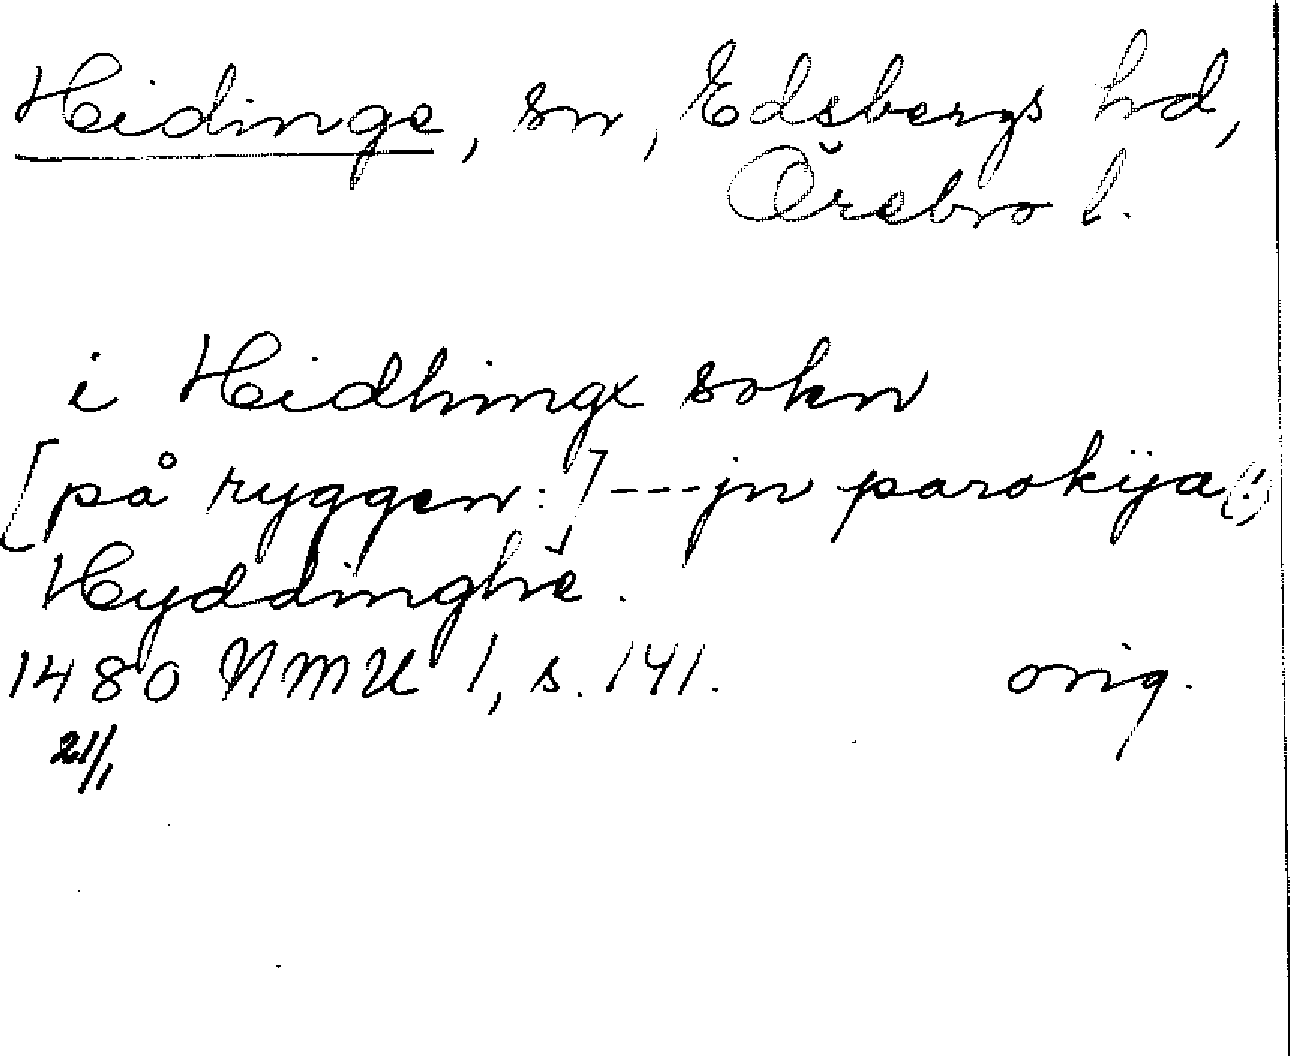 Hidinge, sn, Edsbergs hd,
Örebro l.
i Hidhingx sokn
[på ryggen:] --- jn parokija (!)
Hyddinghe.
1480 NMU 1, s. 141. orig.
21/1